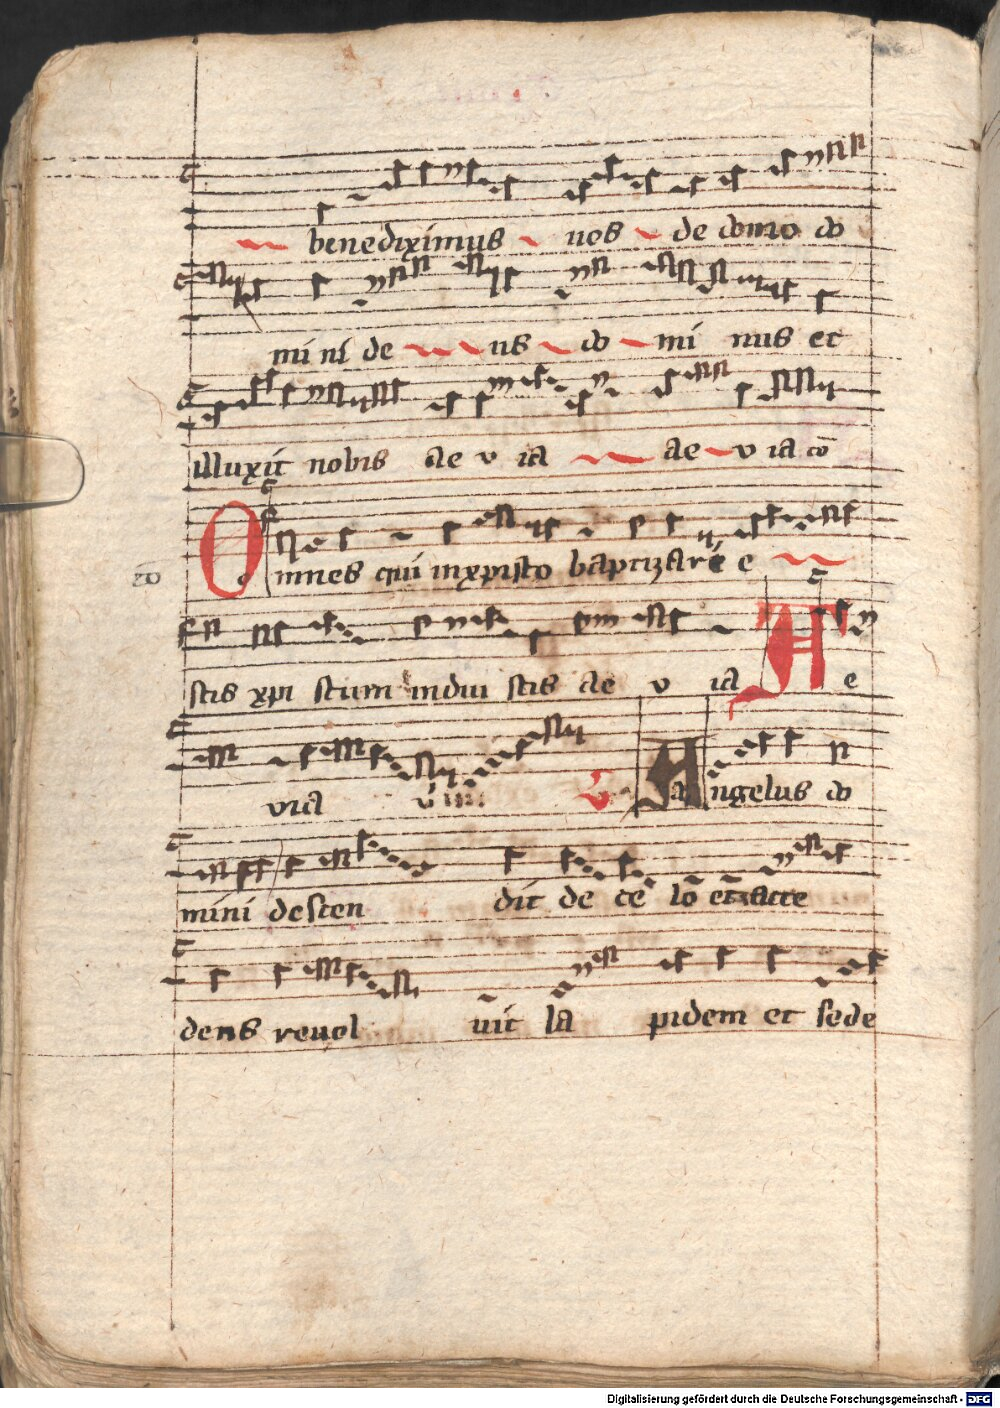 benediximus vos de domo do
mini de us do mi nus et
illuxit nobis ae v ia ae v ia cō
co
Omnes qui in xpisto baptizati e
stis xpi stum indui stis ae v ia Ae
via
Angelus do
mini descen dit de ce lo et acce
dens revol vit la pidem et sede
Digitalisierung gefördert durch die Deutsche Forschungsgemeinschaft - DFG